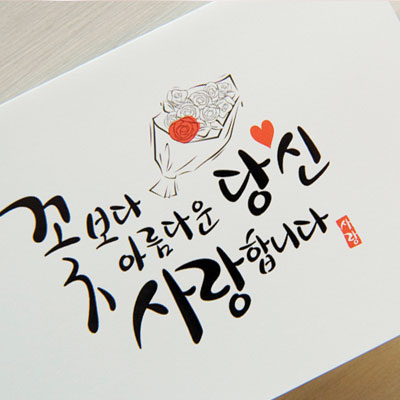 꽃보다
아름다운 당신
사랑합니다
사랑